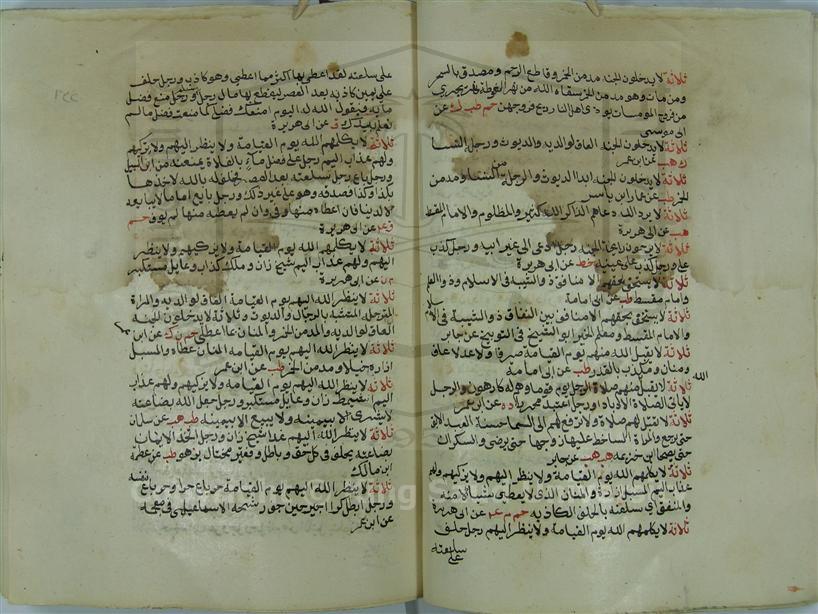 ثلاثة لا يدخلون الجنة مدمن الخمر وقاطع الرحم ومصدق بالسحر
ومن مات وهو مدمن الخمر سقاه الله من نهر الغوطة نهر يجري
من فروج المومسات يوذي اهل النار ريح فروجهن حم طب ك عن
ابي موسى
ثلاثة لا يدخلون الجنة العاق لوالديه والديوث ورجلة النسا
ك هب عن ابن عمر
ثلاثة لا يدخلون الجنة ابدا الديوث والرجلة من النسا ومدمن
الخمر طب عن عمار بن ياسر
ثلاثة لا يرد الله دعاهم الذاكر الله كثيرا والمظلوم والامام المقسط
هب عن ابي هريرة
ثلاثة لا يريحون رائحة الجنة رجل ادعى الى غير ابيه ورجل كذب
علي ورجل كذب على عينيه خط عن ابي هريرة
ثلاثة لا يستخف بحقهم الا منافق ذو الشيبة في الاسلام وذو العلم
وامام مقسط طب عن ابي امامة
ثلاثة لا يستخف بحقهم الا منافق بين النفاق ذو الشيبة في الاسلام
والامام المقسط ومعلم الخير ابو الشيخ في التوبيخ عن جابر
ثلاثة لا يقبل الله منهم يوم القيامة صرفا ولا عدلا عاق
ومنان ومكذب بالقدر طب عن ابي امامة
ثلاثة لا يقبل الله منهم صلاة الرجل يوم قوما وهم له كارهون والرجل
لا ياتي الصلاة الا دبارا ورجل اعتبد محررا د ه عن ابن عمر
ثلاثة لا تقبل لهم صلاة ولا ترفع لهم الى السما حسنة العبد الابق
حتى رجع والمراة الساخط عليها زوجها حتى يرضى والسكران
حتى يصحا ابن خزيمة حب هب عن جابر
ثلاثة لا يكلمهم الله يوم القيامة ولا ينظر اليهم ولا يزكيهم ولهم
عذاب اليم المسبل ازاره والمنان الذي لا يعطي شيا الا منه
والمنفق سلعته بالحلف الكاذبه حم م عم عن ابي ذر
ثلاثة لا يكلمهم الله يوم القيامة ولا ينظر اليهم رجل حلف
على سلعته
على سلعته لقد اعطى بها اكثر مما اعطي وهو كاذب ورجل حلف
على يمين كاذبه بعد العصر ليقطع بها مال رجل ورجل منع فضل
مايه فيقول الله له اليوم امنعك فضلي كما منعت فضل ما لم
تعمل يداك ق عن ابي هريرة
ثلاثة لا يكلمهم الله يوم القيامة ولا ينظر اليهم ولا يزكيهم
ولهم عذاب اليم رجل على فضل ماء بالفلاة يمنعه من ابن السبيل
ورجل باع رجلا سلعته بعد العصر فحلف له بالله لاخذها
بكذا وكذا فصدقه وهو على غير ذلك ورجل بايع اماما لا يبايعه
الا لدنيا فان اعطاه منها وفى وان لم يعطه منها لم يوف حم
ق عم عن ابي هريرة
ثلاثة لا يكلمهم الله يوم القيامة ولا يزكيهم ولا ينظر
اليهم ولهم عذاب اليم شيخ زان وملك كذاب وعايل مستكبر
م ن عن ابي هريرة
ثلاثة لا ينظر الله اليهم يوم القيامة العاق لوالديه والمراة
المترجله المتشبة بالرجال والديوث وثلاثة لا يدخلون الجنة
العاق لوالديه والمدمن الخمر والمنان بما اعطى حم ن ك عن ابن عمر
ثلاثة لا ينظر الله اليهم يوم القيامة المنان عطاه والمسبل
ازاره خيلا ومدمن الخمر طب عن ابن عمر
ثلاثة لا ينظر الله اليهم يوم القيامة ولا يزكيهم ولهم عذاب
اليم اشيمط زان وعايل مستكبر ورجل جعل الله بضاعته
لا يشتري الا بيمينه ولا يبيع الا بيمينه طب هب عن سلمان
ثلاثة لا ينظر الله اليهم غدا شيخ زان ورجل اتخذ الايمان
بضاعته يحلف في كل حق وباطل وفقير مختال يزهو طب عن عصمة
ابن مالك
ثلاثة لا ينظر الله اليهم يوم القيامة حر باع حرا وحر باع نفسه
ورجل ابطل كرا اجير حين جف رشحه الاسمعيلي في معجمه
عن ابن عمر